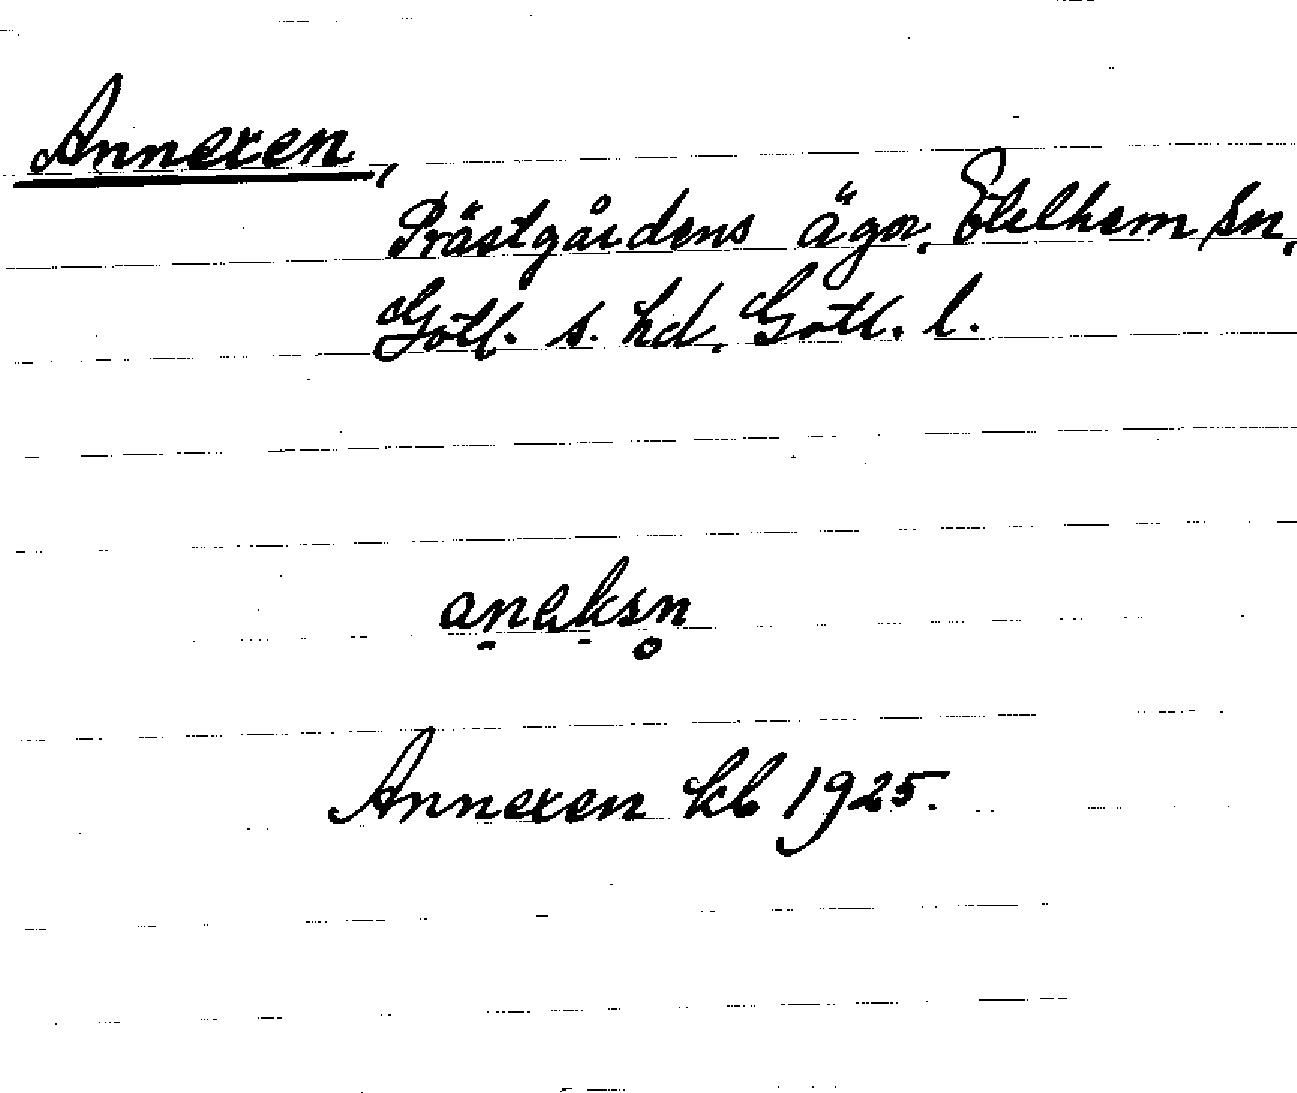 Annexen,
Prästgårdens ägor, Etelhem sn,
Gotl. s. hd, Gotl. l.
aneksn̥
Annexen kb 1925.